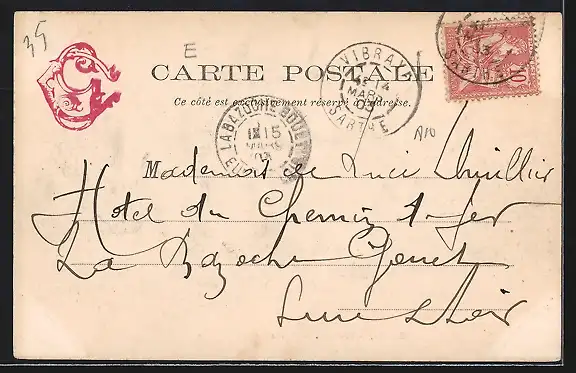 35
E
CARTE POSTALE
Ce côté est exclusivement réservé à l'adresse.
VIBRAYE
14
MARS
SARTHE
LA BAZOCHE-GOUET
15
MARS
10
A10
Mademoiselle Luce Lhuillier
Hotel du Chemin de fer
La Bazoche Gouet
Eure & Loir